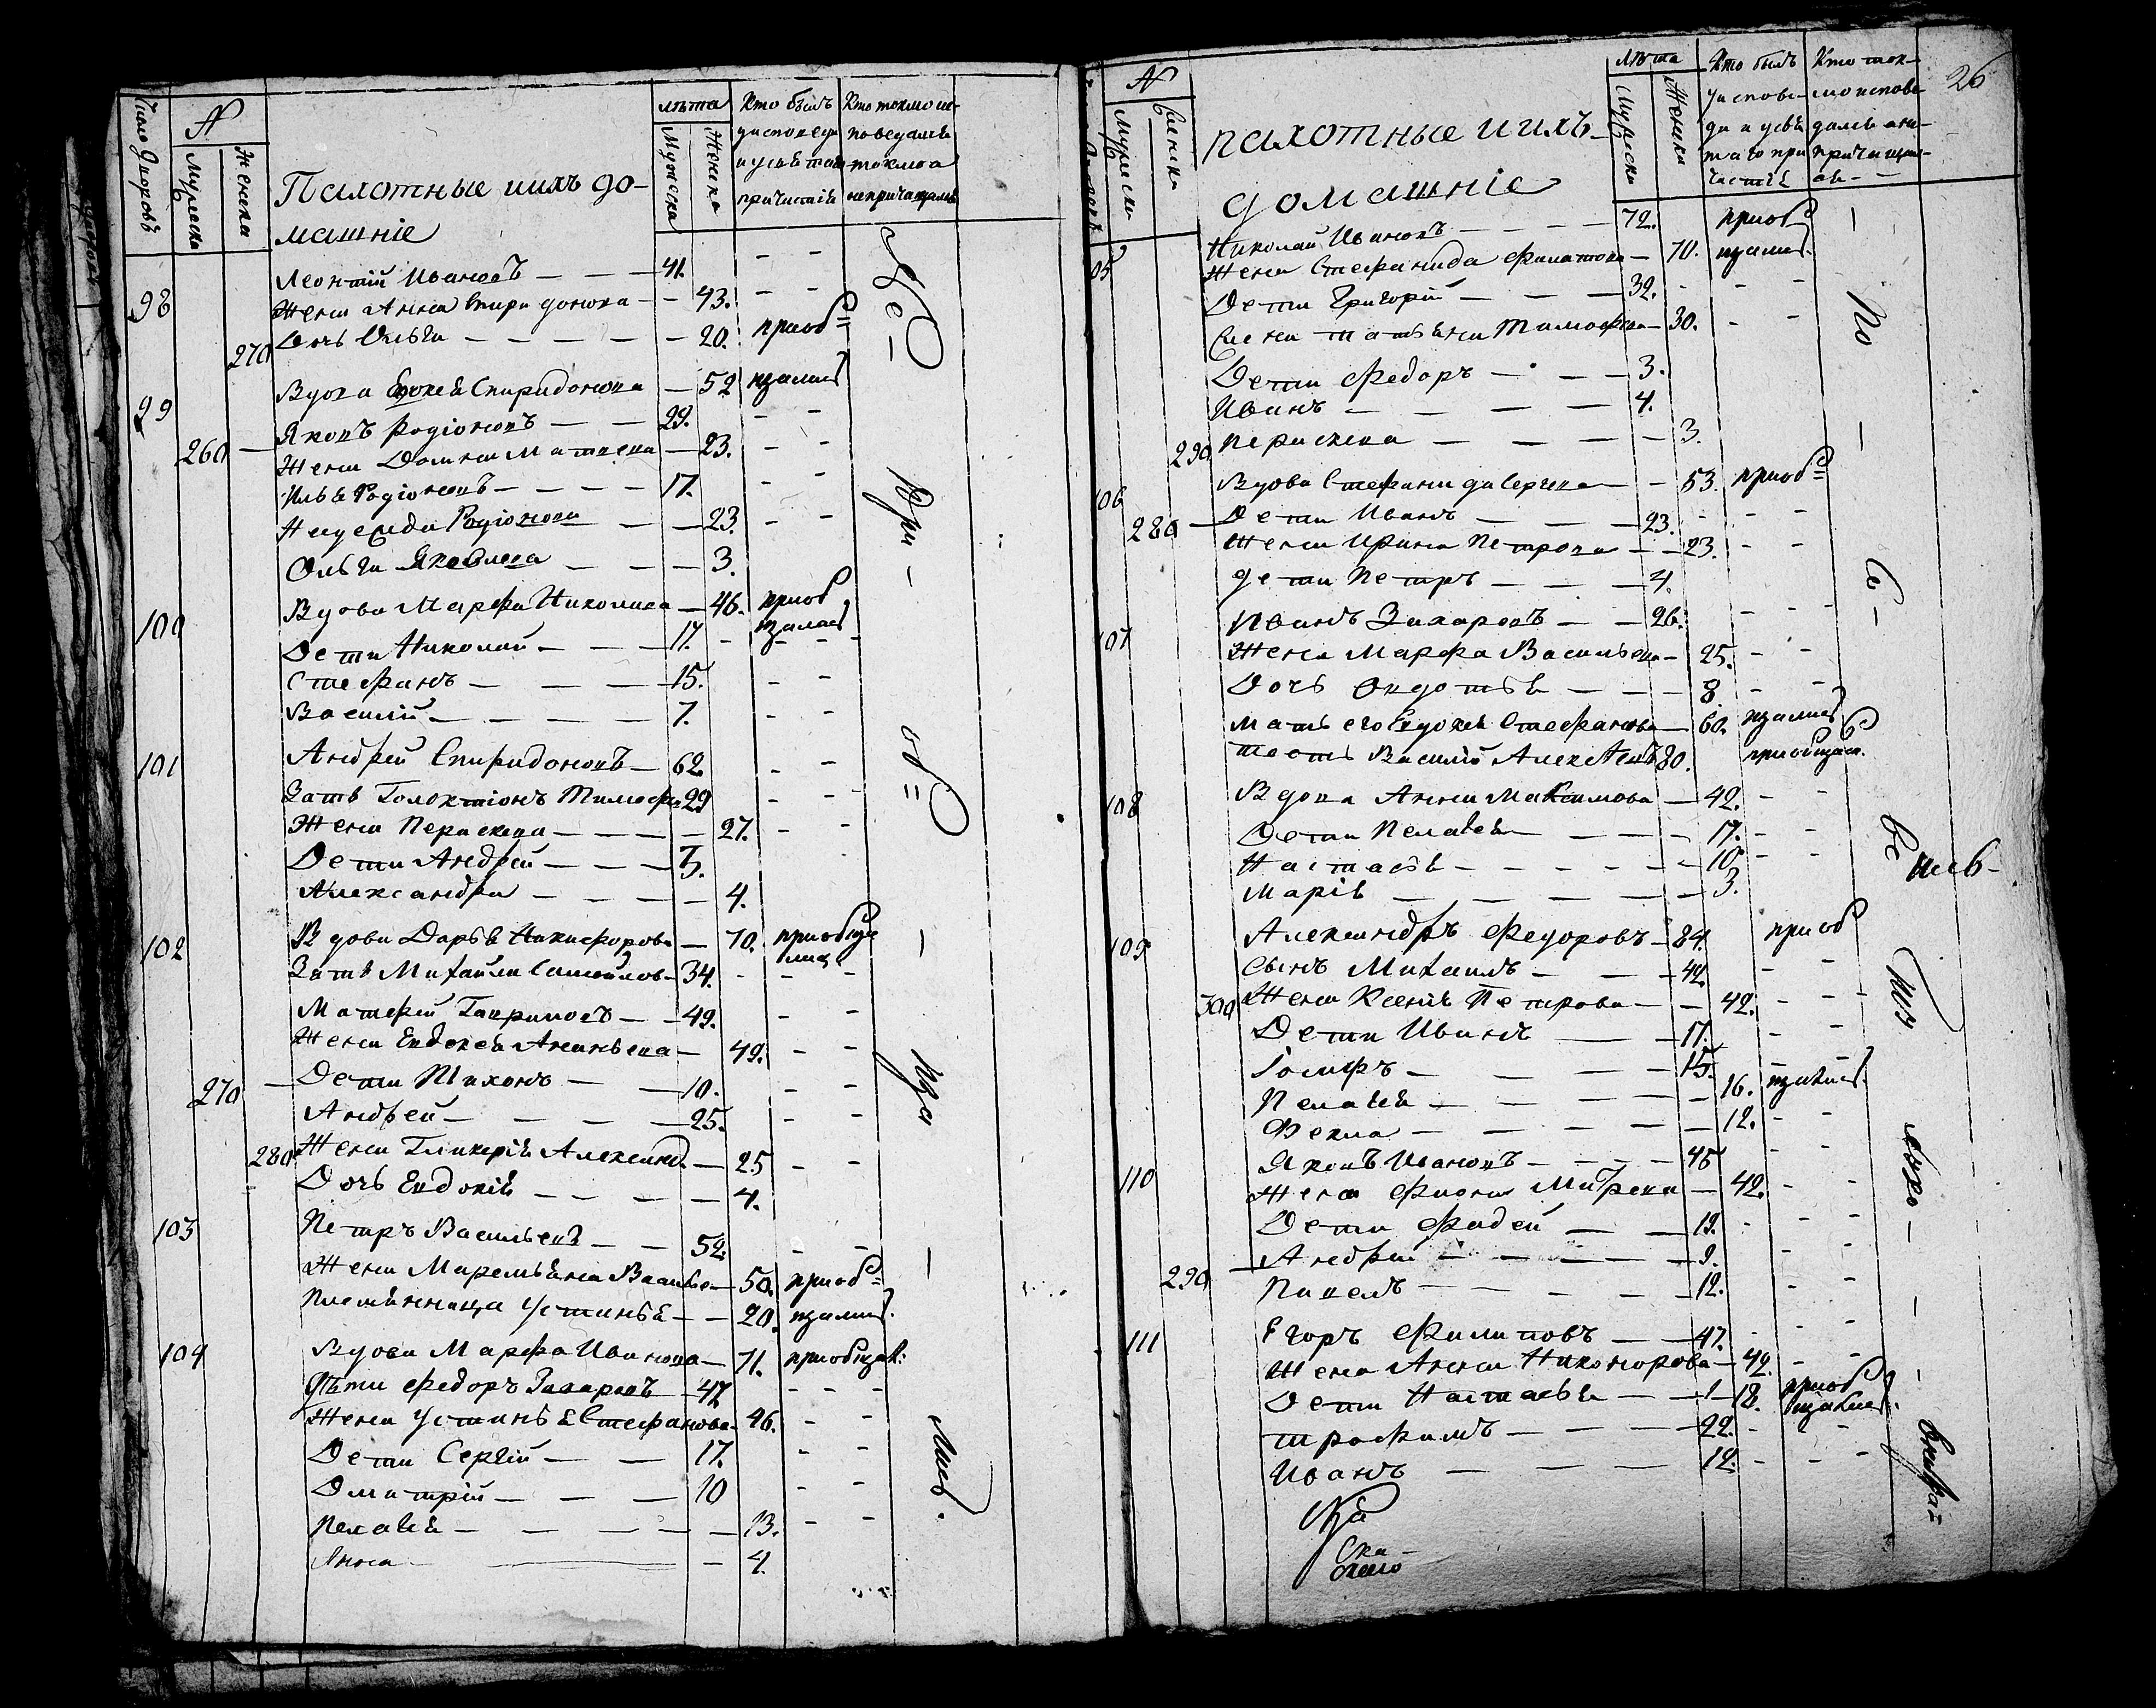 Число дворовъ
№
Мужеска
Женска
Пахотные ихъ до-
машніе
лѣта
Мужеска
Женска
Кто былъ
у исповеди
и у святаго
причастія
Кто токмо ис-
поведался
токмо а
непричащался
98 Леонтій Ивановъ — — — 41.
Жена Анна Спиридонова — — 43.
270 Дочь Ольга — — — — — 20. приоб=
99 Вдова Евдокея Спиридонова — 52 щались
Яковъ Родіоновъ — — 29.
260 — Жена Домна Матвеева — 23.
Илья Родіоновъ — — — — 17.
Надежда Родіонова — — 23.
Ольга Яковлева — — — 3.
100 Вдова Марфа Николаева — 46. приоб
щалась
Дети Николай — — — 17.
Стефанъ — — — — 15.
Василій — — — — — 7.
101 Андрей Спиридоновъ — 62
Зять Голохтіонъ Тимофе 29
Жена Парасковья — — — — 27.
Дети Андрей — — — 3.
Александра — — — — 4.
102 Вдова Дарья Никифорова — 70. приобще
лись
Зять Михайла Самойлов — 34.
Матфей Гавриловъ — — 49.
Жена Евдокея Ананьева — 49.
270 — Дети Тихонъ — — — 10.
Андрей — — — — 25.
280 Жена Гликерія Александ. — 25
Дочь Евдокія — — — — 4.
103 Петръ Васильевъ — — 52.
Жена Маремьяна Василье — 50. приоб=
Племянница Устинья — — 20. щались.
104 Вдова Марфа Иванова — 71. приобщал:
Дѣти Федоръ Захаровъ — 47
Жена Устинья Стефанова — 46.
Дети Сергій — — 17.
Дмитрій — — — 10
Пелагея — — — — — 13.
Анна — 4.
Не —
При —
об=
ща
лись.
26
№
Мужеска
Женска
пахотные и ихъ
домашніе
лѣта
Мужеска
Женска
Кто былъ
у испове-
ди и у свя
таго при
частія
Кто ток-
мо испове-
дался а не-
причащал-
ся — —
05 Николай Ивановъ — — — — 72. приоб
Жена Стефанида Филатова — 70. щались.
Дети Григорій — — — 32.
Жена Татьяна Тимофеева — 30.
Дети Федоръ — — — 3.
Иванъ — — — — 4.
290 Парасковья — — — — 3.
106 Вдова Стефанида Сергеева — — 53. приоб=
280 — Дети Иванъ — — — 23.
Жена Ирина Петрова — — 23.
дети Петръ — — — 4.
107 Иванъ Захаровъ — — 26.
Жена Марфа Васильева — 25.
Дочь Авдотья — — — 8
мать его Евдокея Стефанова — 60. щались
тесть Василій Алексеевъ 80. приобщал.
108 Вдова Анна Максимова — 42.
Дети Пелагея — — — 17.
Настасья — — — — — 10.
Марія — — — — — 3.
109 Александръ Федоровъ — 84. приоб
Сынъ Михаилъ — — — 42.
300 Жена Ксенія Петрова — — 42.
Дети Иванъ — — 17.
Іосифъ — — — — 15.
Пелагея — — — — — 16. щались.
Фекла — — — — — 12.
110 Яковъ Ивановъ — — — — 45
Жена Фиона Митреева — 42.
Дети Фадей — — 12.
290 — Андрей — — — — 9.
Павелъ — — — — 12.
111 Егоръ Филиповъ — — 47.
Жена Анна Никонорова — 42.
Дети Настасья — — 18. приоб
щались.
трофимъ — — — — 22.
Иванъ — — — — 12.
По